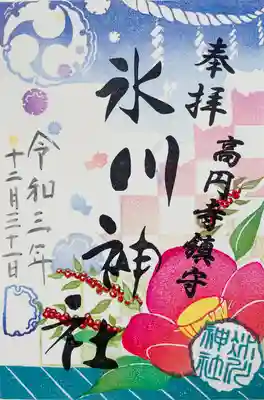 奉拝
高円寺鎮守
氷川神社
令和三年
十二月三十一日
氷川
神社